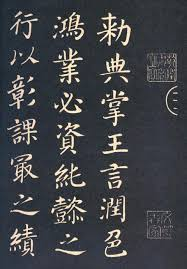 勅典掌王言潤色
鴻業必資純懿之
行以彰課最之績